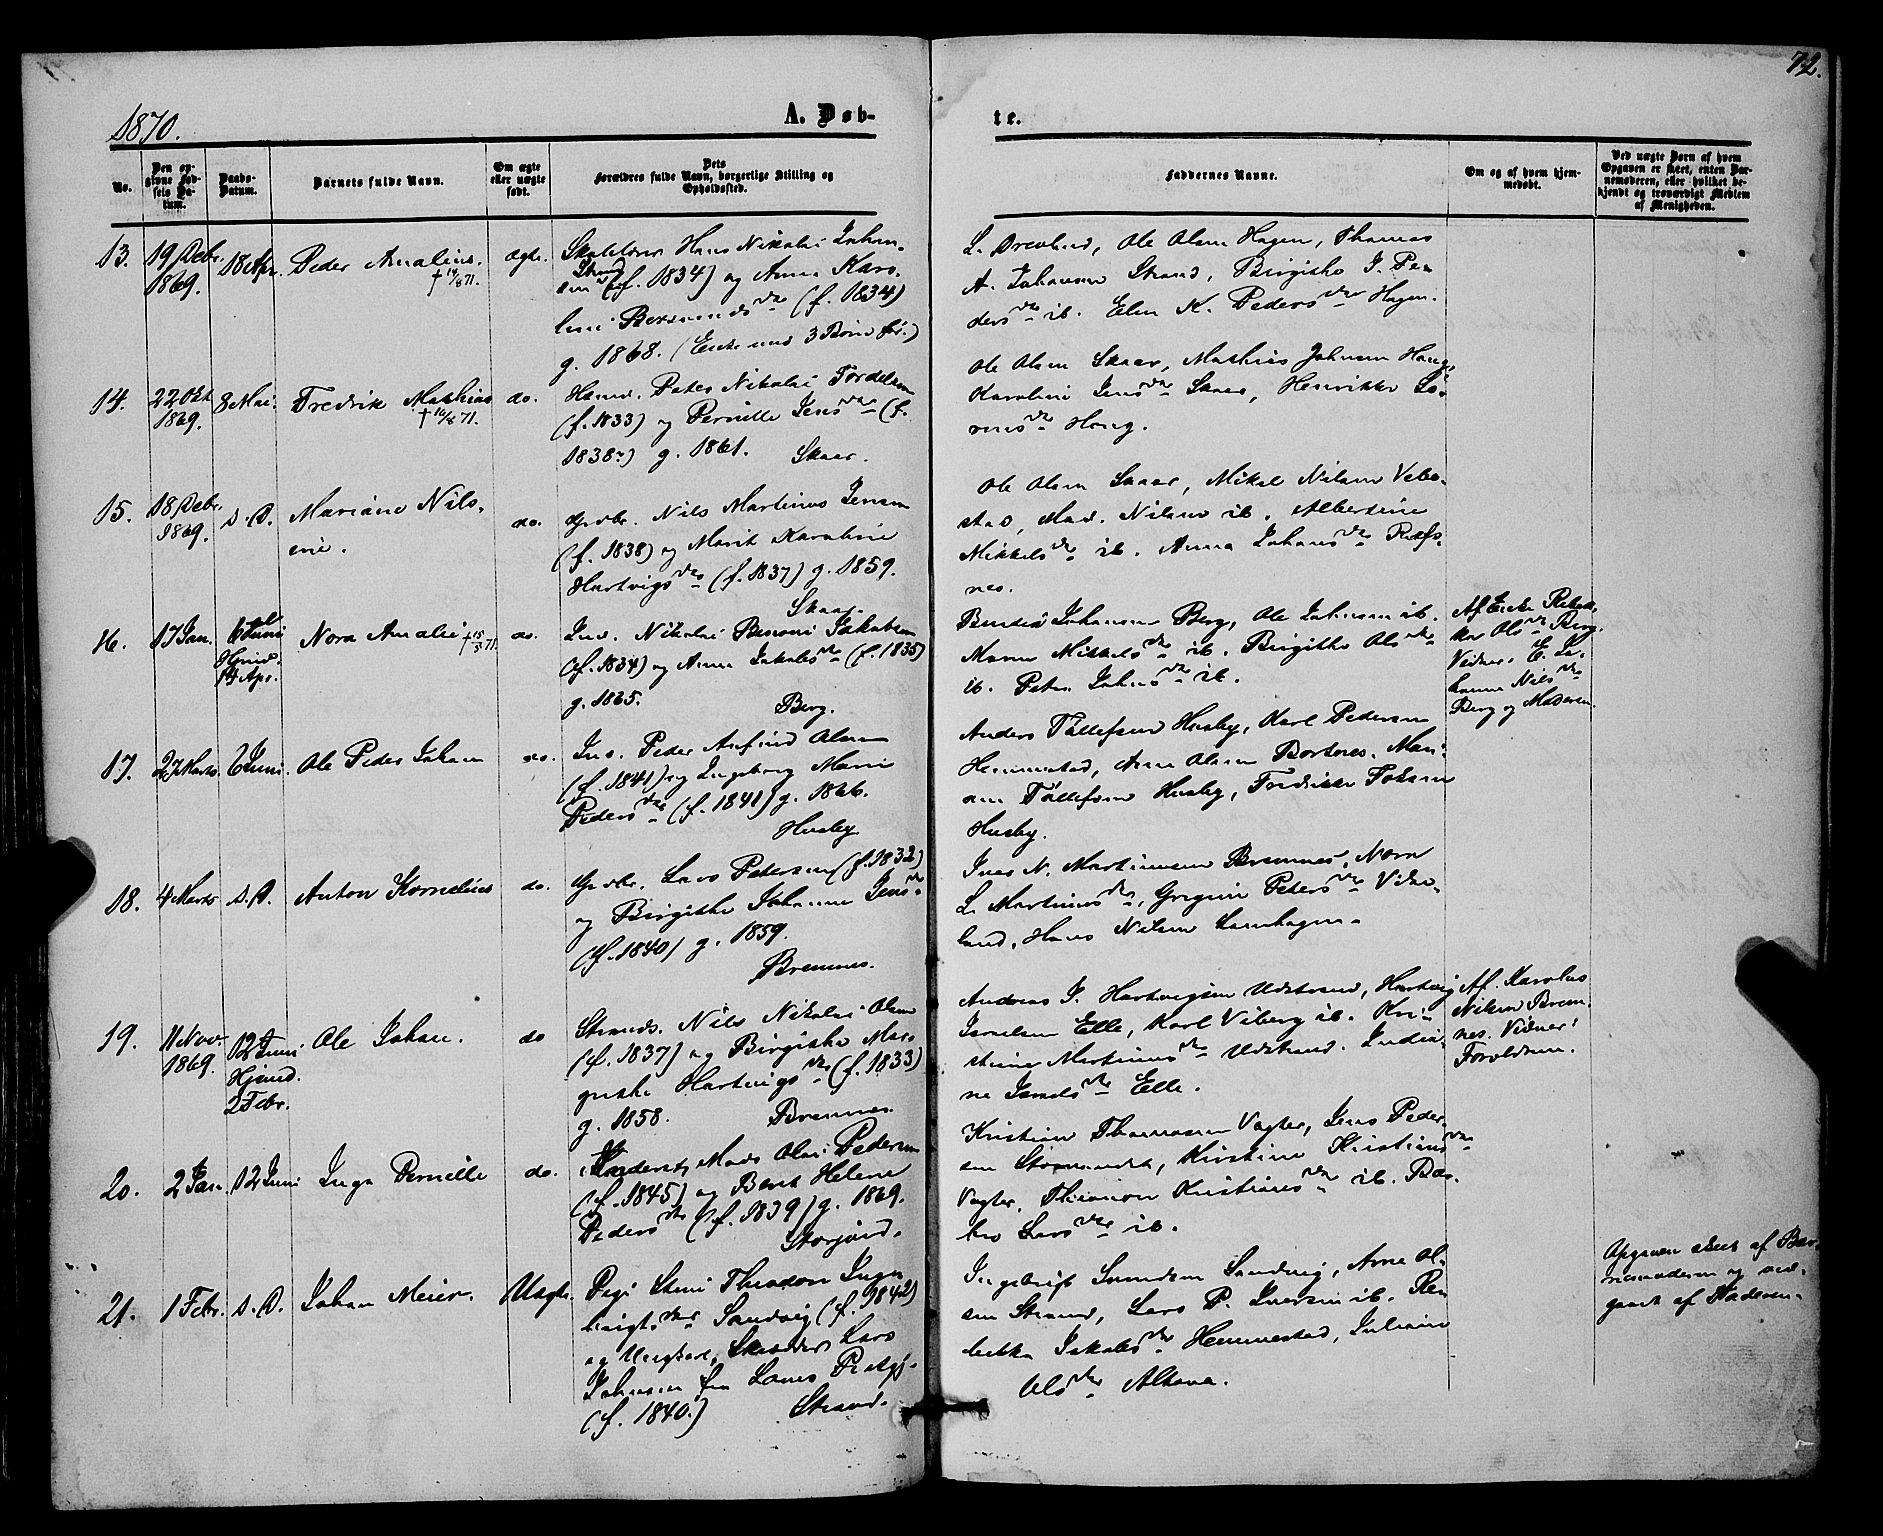 72.
1870.
A. Døb-
te.
No.
Den op-
givne Fød-
sels Da-
tum.
Daabs-
Datum.
Barnets fulde Navn.
Om ægte
eller uægte
født.
Dets
Forældres fulde Navn, borgerlige Stilling og
Opholdssted.
Faddernes Navne.
Om og af hvem hjem-
medøbt.
Ved uægte Børn af hvem
Opgaven er skeet, enten Bar-
nemoderen, eller hvilket be-
kjendt og troværdigt Medlem
af Menigheden.
13.
19 Debr.
1869.
18 Apr.
Peder Amalius.
† 14/8 71.
ægte.
Hans Nikolai Johan-
sen (f. 1834) og Anna Karo-
Strand
line (f. 1834)
g. 1868. (Enke med 3 Børn før.)
L. Drevland, Ole Olsen Hagen, Thomas
A. Johansen Strand, Birgithe J. Pe-
dersdr ib. Elen K. Pedersdr Hagen.
14.
22 Okt
1869.
8 Mai.
Fredrik Mathias
† 16/8 71.
do.
Peter Nikolai Tordelsen
(f. 1833) og Pernille Jensdr (f.
1838) g. 1861. Skaar.
Ole Olsen Skaar, Mathias Johnsen Haug,
Karoline Jensdr Skaar, Henrikke So-
rensdr Haug.
15.
18 Debr.
1869.
s. D.
Mariane Nils-
ine.
do.
Grdbr. Nils Martinus Jensen
(f. 1838) og Marit Karoline
Hartvigsdr (f. 1837) g. 1859.
Skaar.
Ole Olsen Skaar, Mikal Nilsen Vebo-
stad, Mad. Nilsen ib. Albertine
Mikkelsdr ib. Anna Johansdr Refs-
nes.
16.
17 Jan.
6 Juni
Hjmd.
14 Apr.
Nora Amalie
† 15/5 71.
do.
Ind. Nikolai Benoni Jakobsen
(f. 1834) og Anna Jakobsdr (f. 1835)
g. 1865. Berg.
Johansen Berg, Ole Johansen ib.
Maren Mikkelsdr ib. Birgithe Olsdr
ib. Peter ib.
Af Enke Rebek-
ka Olsdr Berg.
Vidner: E. Jo-
hanna Nilsdr
Berg og Moderen.
17.
27 Marts.
6 Juni.
Ole Peder Johan
do.
Ind. Peder Arfind Olsen
(f. 1841) og Ingeborg Marie
Pedersdr (f. 1841) g. 1866.
Husby
Anders Tollefsen Husby, Karl Pedersen
Hemmestad, Arne Olsen Bortnes. Mari-
ane Tollefsen Husby, Fredrikke
Husby.
18.
4 Marts
s. D.
Anton Kornelius
do.
Grdbr. Lars Petersen (f. 1832)
og Birgithe Johanna Jensdr
(f. 1840) g. 1859.
Bremnes.
Jens N. Martinusen Bremnes, Nora
L. Martinusdr, Petersdr Vike-
land, Hans Nilsen
19.
11 Nov.
1869.
12 Juni
Hjemd.
2 Febr.
Ole Johan.
do
Strands. Nils Nikolai Olsen
(f. 1837) og Birgithe Mar-
grethe Hartvigsdr (f. 1833)
g. 1858. Bremnes.
Andreas J. Hartvigsen Udstrand, Hartvig
Israelsen Elle, Karl Viberg ib. Kri-
stine Martinusdr Udstrand.
ne Israelsdr Elle.
Af. Karolus
Nilsen Brem-
nes. Vidner:
Forældrene.
20.
2 Jan.
12 Juni
Inga Pernille
do.
Mads Olai Pedersen
(f. 1845) og Berit Helene
Pedersdr (f. 1839) g. 1869.
Storjord.
Kristian Thomassen Vagter, Jens Peder-
sen Kirstine Kristiansdr
Vagter, Kristiansdr ib.
Larsdr ib.
21.
1 Febr.
s. D.
Johan Meier.
Uægte.
Pige Theodora Inge-
brigtsdr Sandvig (f. 1842)
og Ungkarl, Skrædder Lars
Johnsen fra
(f. 1840.) Strand.
Ingebrigt Svendsen Sandvig, Arne Ol-
sen Strand, Lars P. Iversen ib. Re-
bekka Jakobsdr Hemmestad, Juliane
Olsdr
Opgaven skeet af Bar-
nemoderen og ved-
gaaet af Faderen.